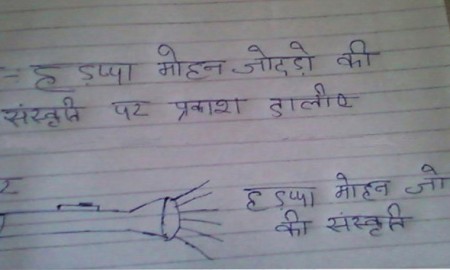 = हडप्पा मोहन जोदडो की
संस्कृति पर प्रकाश डालीए
हडप्पा मोहन जो
की संस्कृति